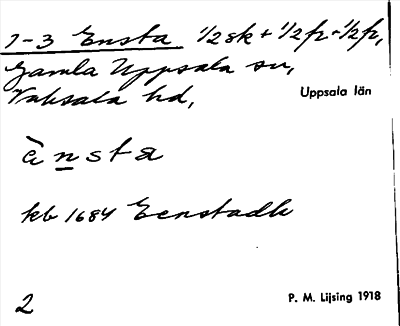 1-3 Ensta 1/2 sk + 1/2 fr - 1/2 fr,
Gamla Uppsala sn,
Vaksala hd,
Uppsala län
ὲnsta
kb 1684 Eenstadh
2
P. M. Lijsing 1918